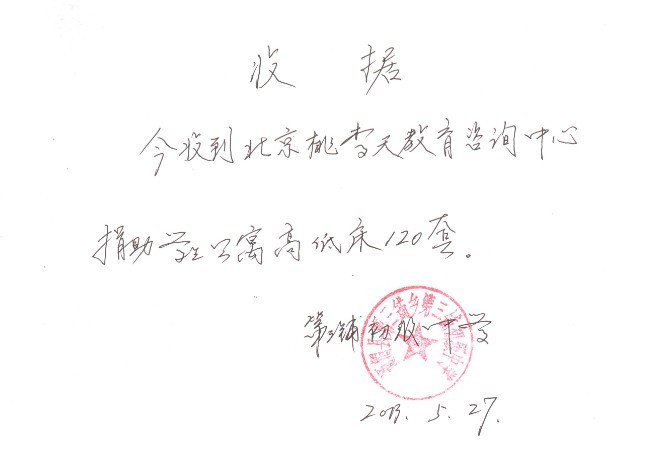 收 据
今收到北京桃李天教育咨询中心
捐助学生公寓高低床120套。
第三铺初级中学
2013. 5. 27.